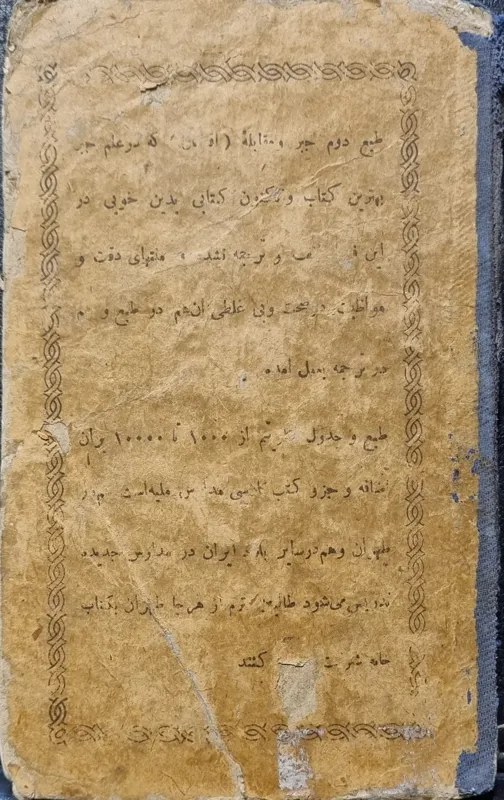 طبع دوم جبر و مقابلهٔ ( ) که در علم جبر
بهترین کتاب و تاکنون کتابی بدین خوبی در
این و ترجمه نشده و منتهای دقت و
مواظبت در صحت و بی غلطی آن هم در طبع و هم
در ترجمه بعمل آمده
طبع و جدول از ۱۰۰۰ تا ۱۰۰۰۰ برآن
اضافه و جزو کتب است
طهران و هم در سایر بلاد ایران در مدارس جدیده
تدریس می‌شود از هر جا طهران بکتاب
خانه کنند